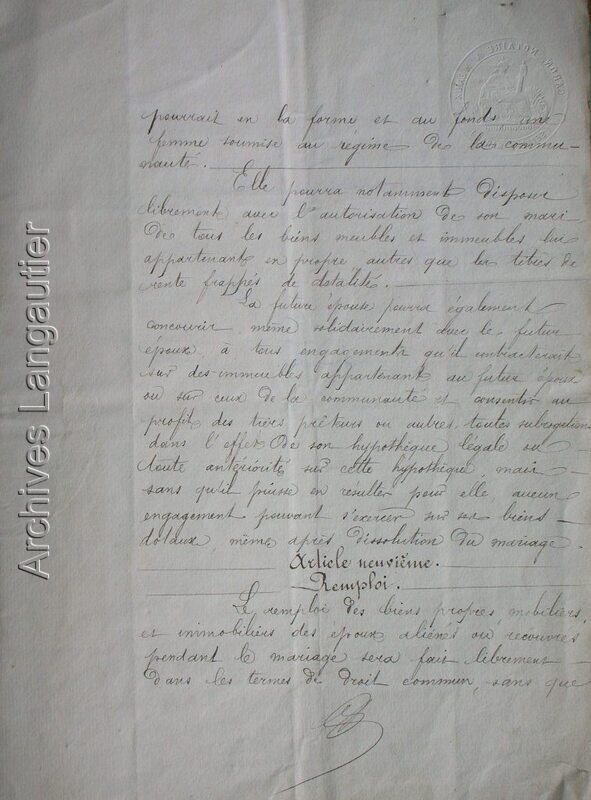 pourrait en la forme et au fonds une
femme soumise au régime de la commu-
nauté.
Elle pourra notamment disposer
librement avec l'autorisation de son mari
de tous les biens meubles et immeubles lui
appartenant en propre autres que les titres de
rente frappés de dotalité.
La future épouse pourra également
concourir, même solidairement avec le futur
époux, à tous engagements qu'il contracterait
sur des immeubles appartenant au futur époux
ou sur ceux de la communauté et consentir au
profit des tiers prêteurs ou autres, toutes subrogations
dans l'effet de son hypothèque légale ou
toute antériorité sur cette hypothèque, mais
sans qu'il puisse en résulter pour elle, aucun
engagement pouvant s'exercer sur ses biens
dotaux, même après dissolution du mariage.
Article neuvième.
Remploi.
Le remploi des biens propres mobiliers,
et immobiliers des époux aliénés ou recouvrés
pendant le mariage sera fait librement
dans les termes de droit commun, sans que
Archives Langautier